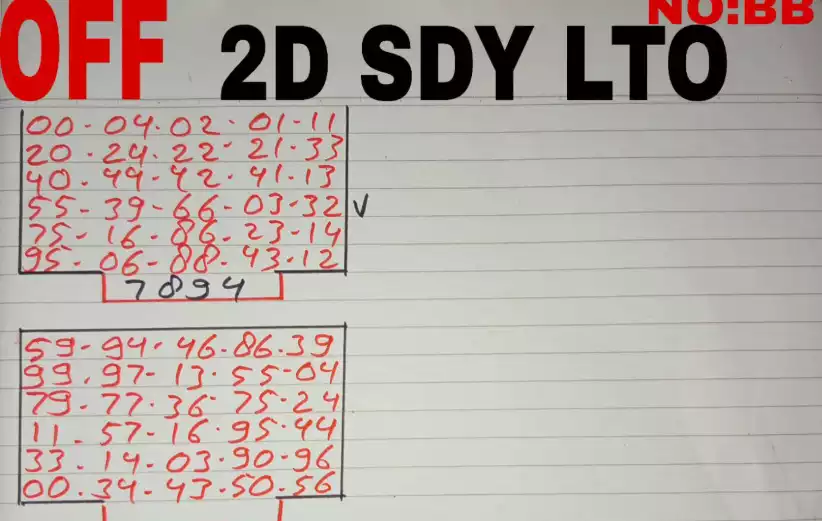 NO:BB
OFF 2D SDY LTO
00-04.02.01-11
20.24.22.21.33
40.44-42.41.13
55-39-66-03.32 V
75-16-86.23-14
95-06-88-43.12
7894
59-94-46.86.39
99.97-13.55-04
79-77.36.75.24
11.57-16.95.44
33.14-03.90-96
00.34-43.50.56